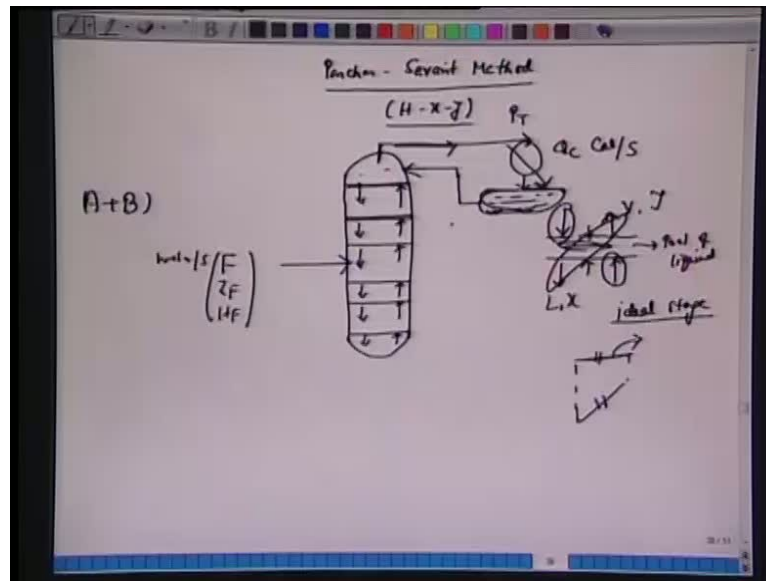 Ponchon - Savarit Method
(H-x-y)
P_T
Q_C Cal/S
A+B)
mole/s F
Z_F
H_F
V, y
Pool of liquid
L, x
ideal stage